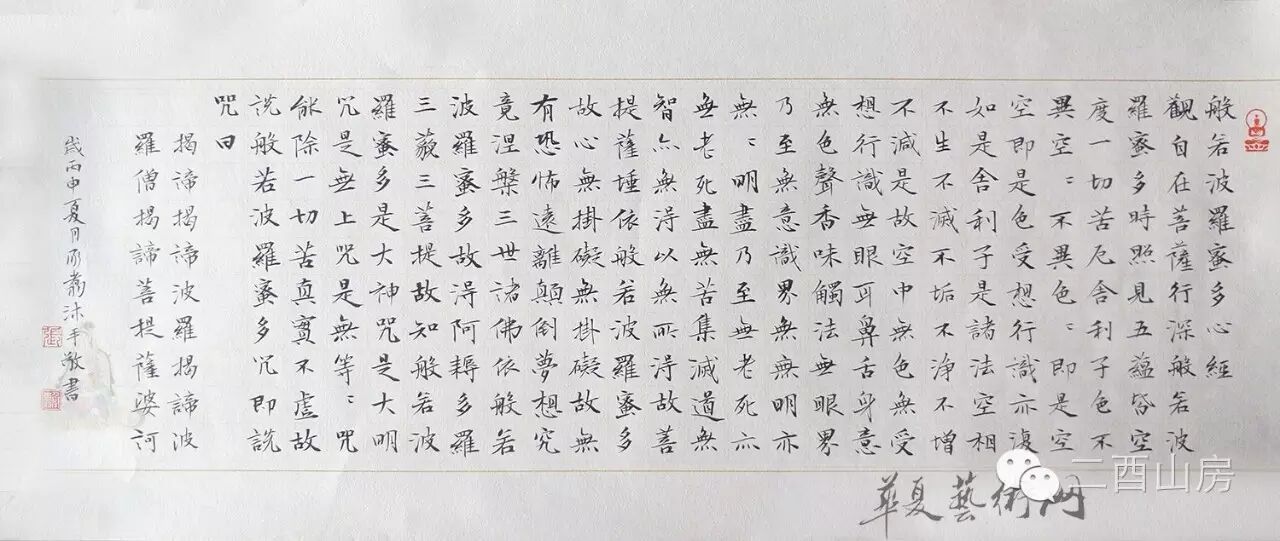 般若波羅蜜多心經
觀自在菩薩行深般若波
羅蜜多時照見五蘊皆空
度一切苦厄舍利子色不
異空〻不異色〻即是空
空即是色受想行識亦復
如是舍利子是諸法空相
不生不滅不垢不浄不增
不減是故空中無色無受
想行識無眼耳鼻舌身意
無色聲香味觸法無眼界
乃至無意識界無無明亦
無〻明盡乃至無老死亦
無老死盡無苦集滅道無
智亦無得以無所得故菩
提薩埵依般若波羅蜜多
故心無掛礙無掛礙故無
有恐怖遠離顛倒夢想究
竟涅槃三世諸佛依般若
波羅蜜多故得阿耨多羅
三藐三菩提故知般若波
羅蜜多是大神咒是大明
咒是無上咒是無等〻咒
能除一切苦真實不虛故
説般若波羅蜜多咒即說
咒曰
揭諦揭諦波羅揭諦波
羅僧揭諦菩提薩婆訶
歲丙申夏月沐手敬書
華夏藝術网
二酉山房